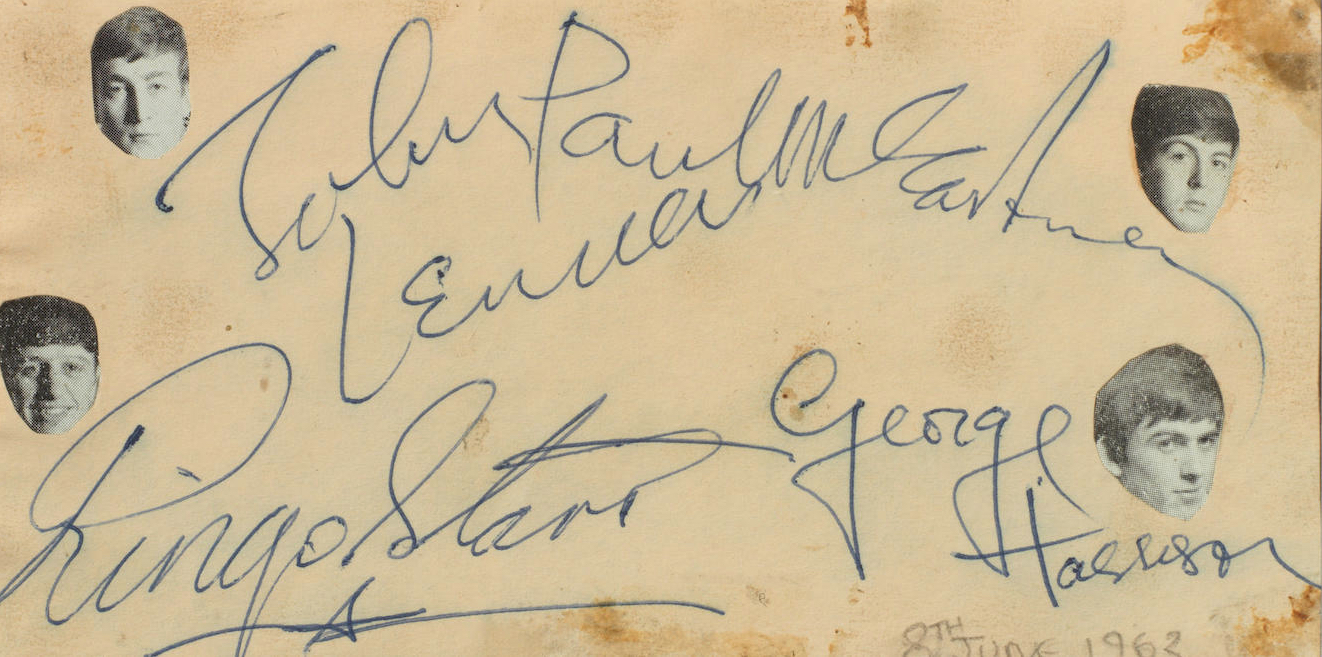 John Paul McCartney
Lennon
Ringo Starr
George
Harrison
8TH JUNE 1963